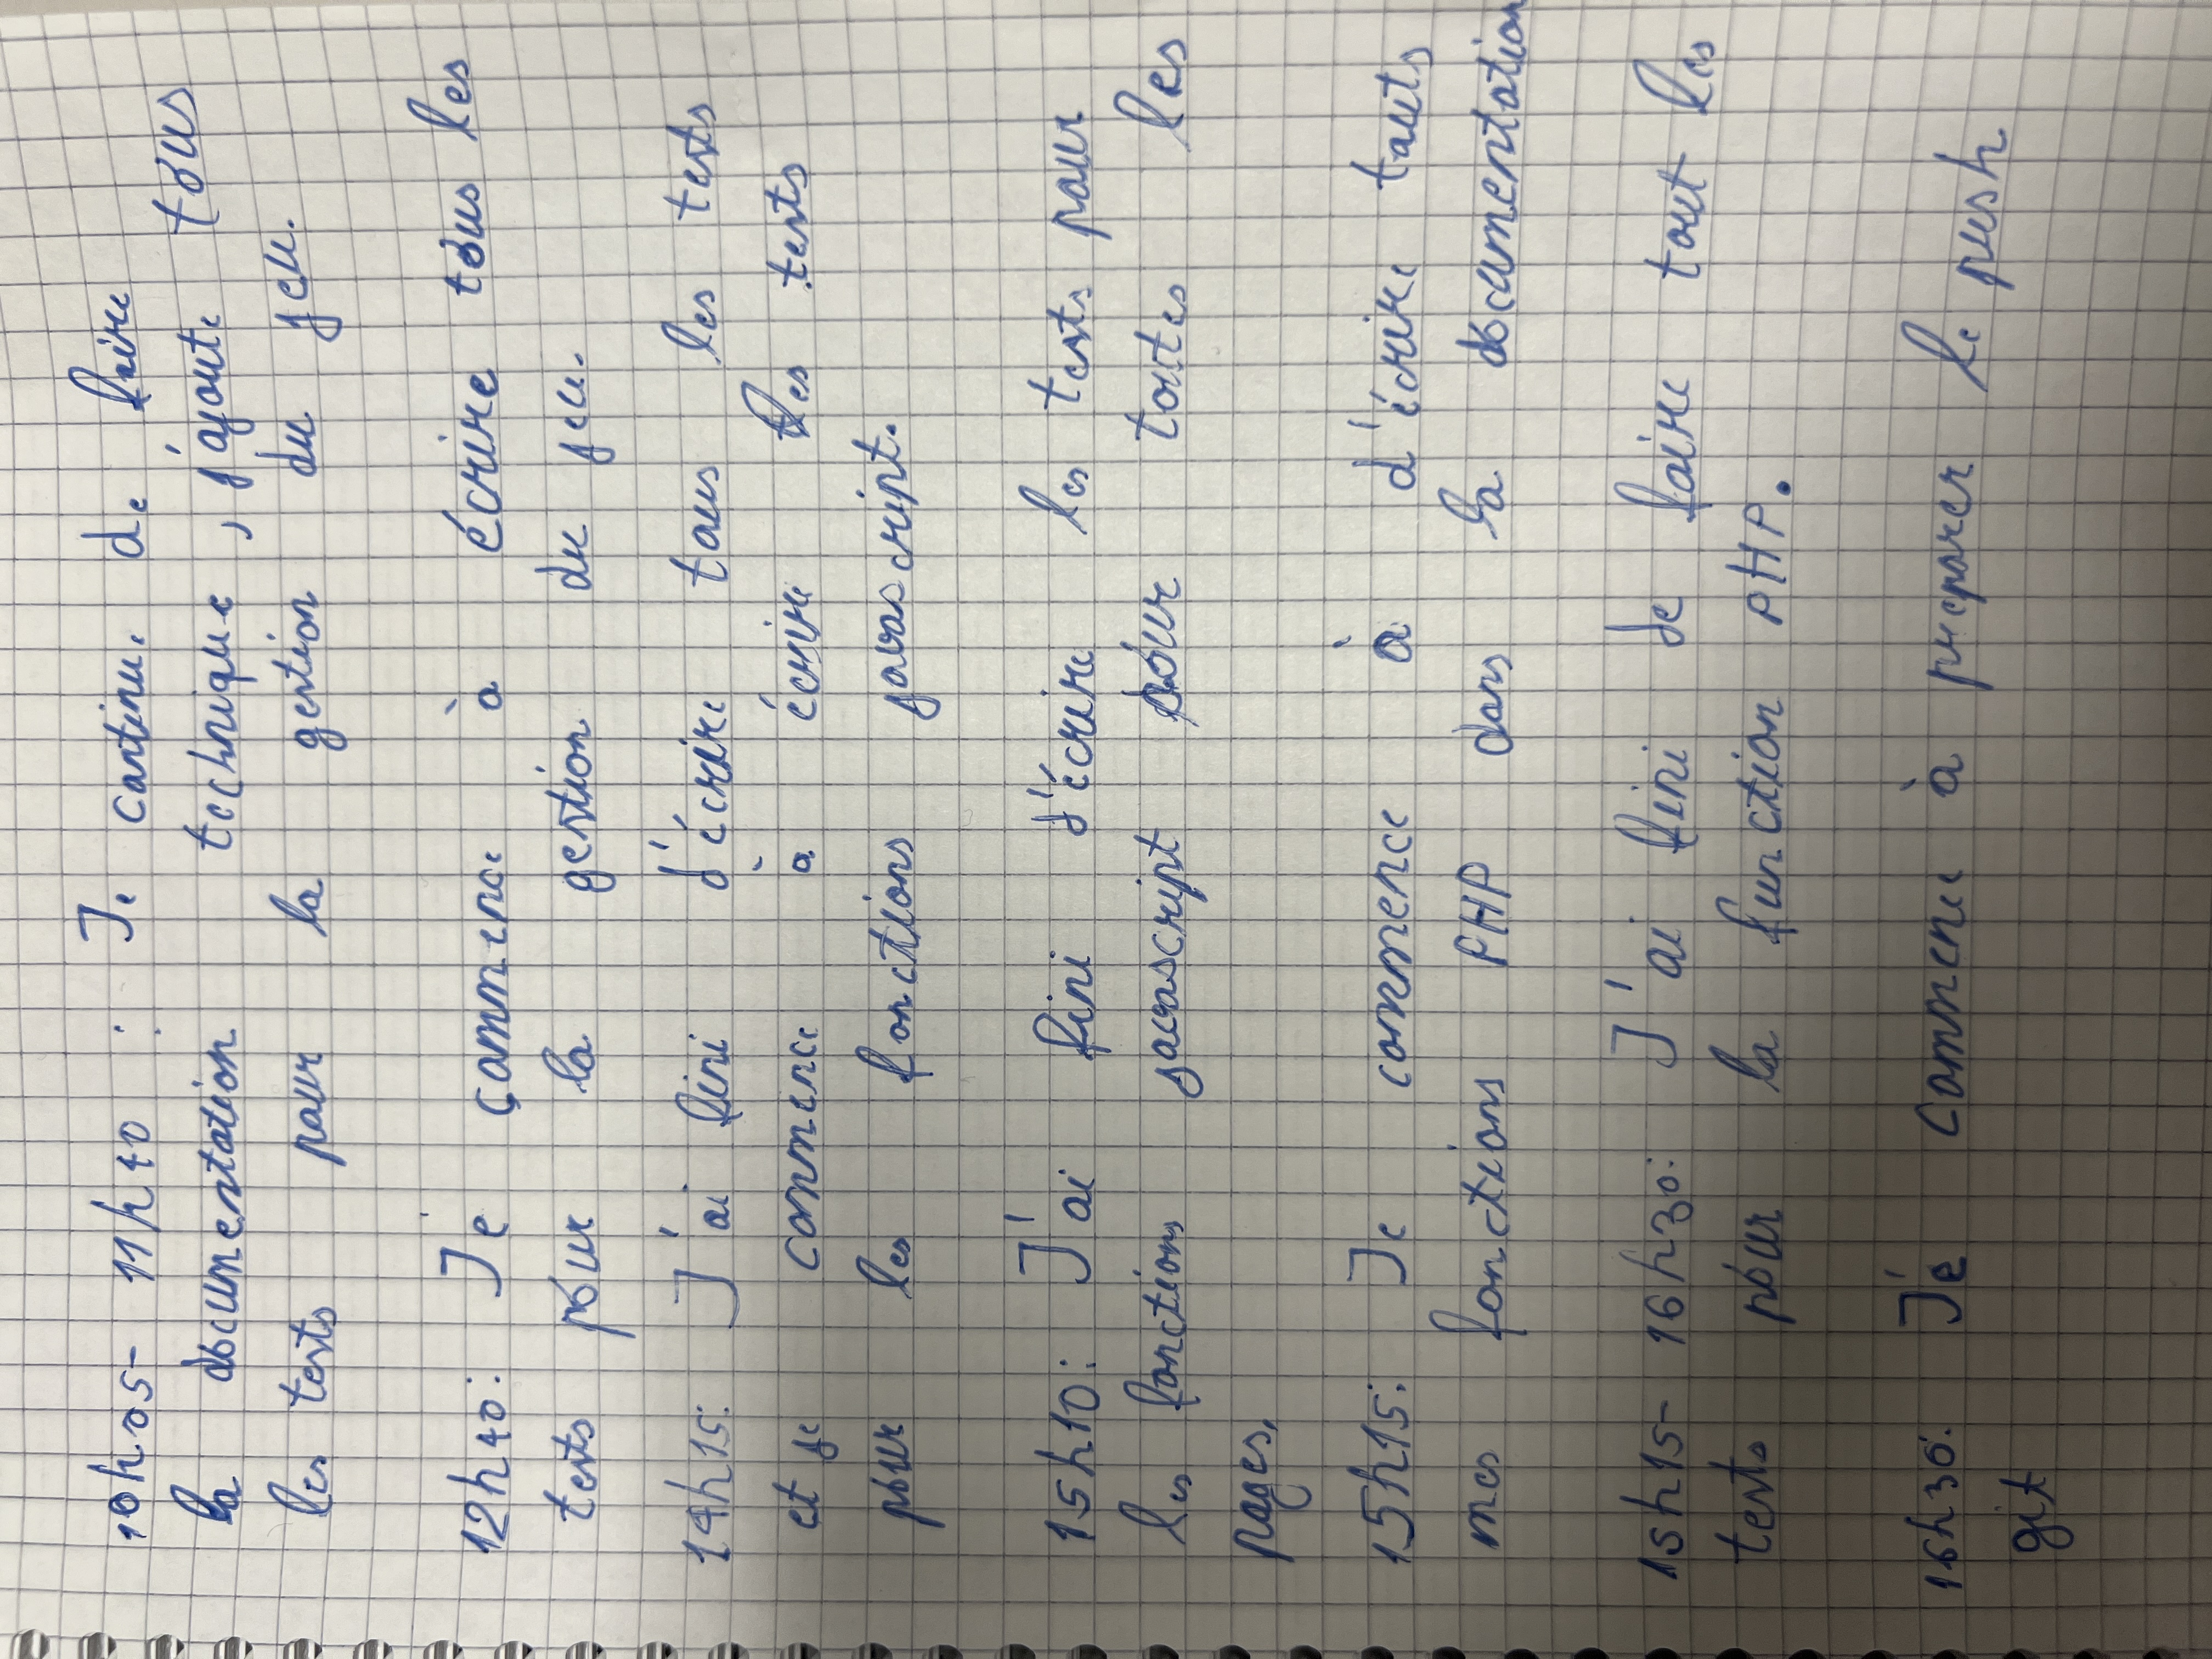 10h05- 11h40 : Je continue de faire
la documentation technique, j'ajoute tous
les tests pour la gestion du jeu.
12h40: Je commence à écrire tous les
tests pour la gestion du jeu.
14h15: J'ai fini d'écrire tous les tests
et je commence à écrire les tests
pour les fonctions javascript.
15h10: J'ai fini d'écrire les tests pour
les fonctions javascript pour toutes les
pages.
15h15: Je commence à d'écrire touts
mes fonctions PHP dans la documentation
15h15- 16h30: J'ai fini de faire tout les
tests pour la function PHP.
16h30: Je commence à preparer le push
git